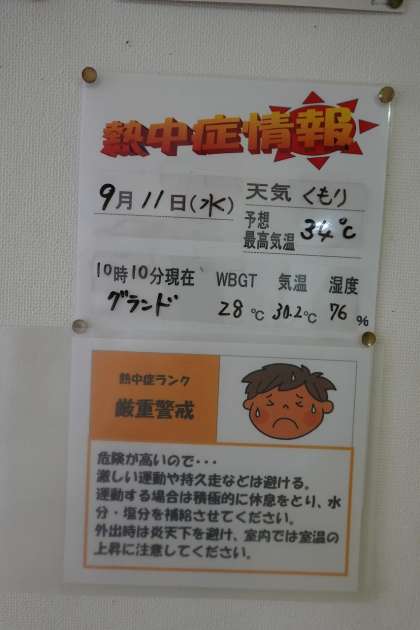 熱中症情報
9月11日(水) 天気 くもり
予想最高気温 34℃
10時10分現在 WBGT 気温 湿度
グランド 28℃ 30.2℃ 76%
熱中症ランク
厳重警戒
危険が高いので・・・
激しい運動や持久走などは避ける。
運動する場合は積極的に休息をとり、水
分・塩分を補給させてください。
外出時は炎天下を避け、室内では室温の
上昇に注意してください。